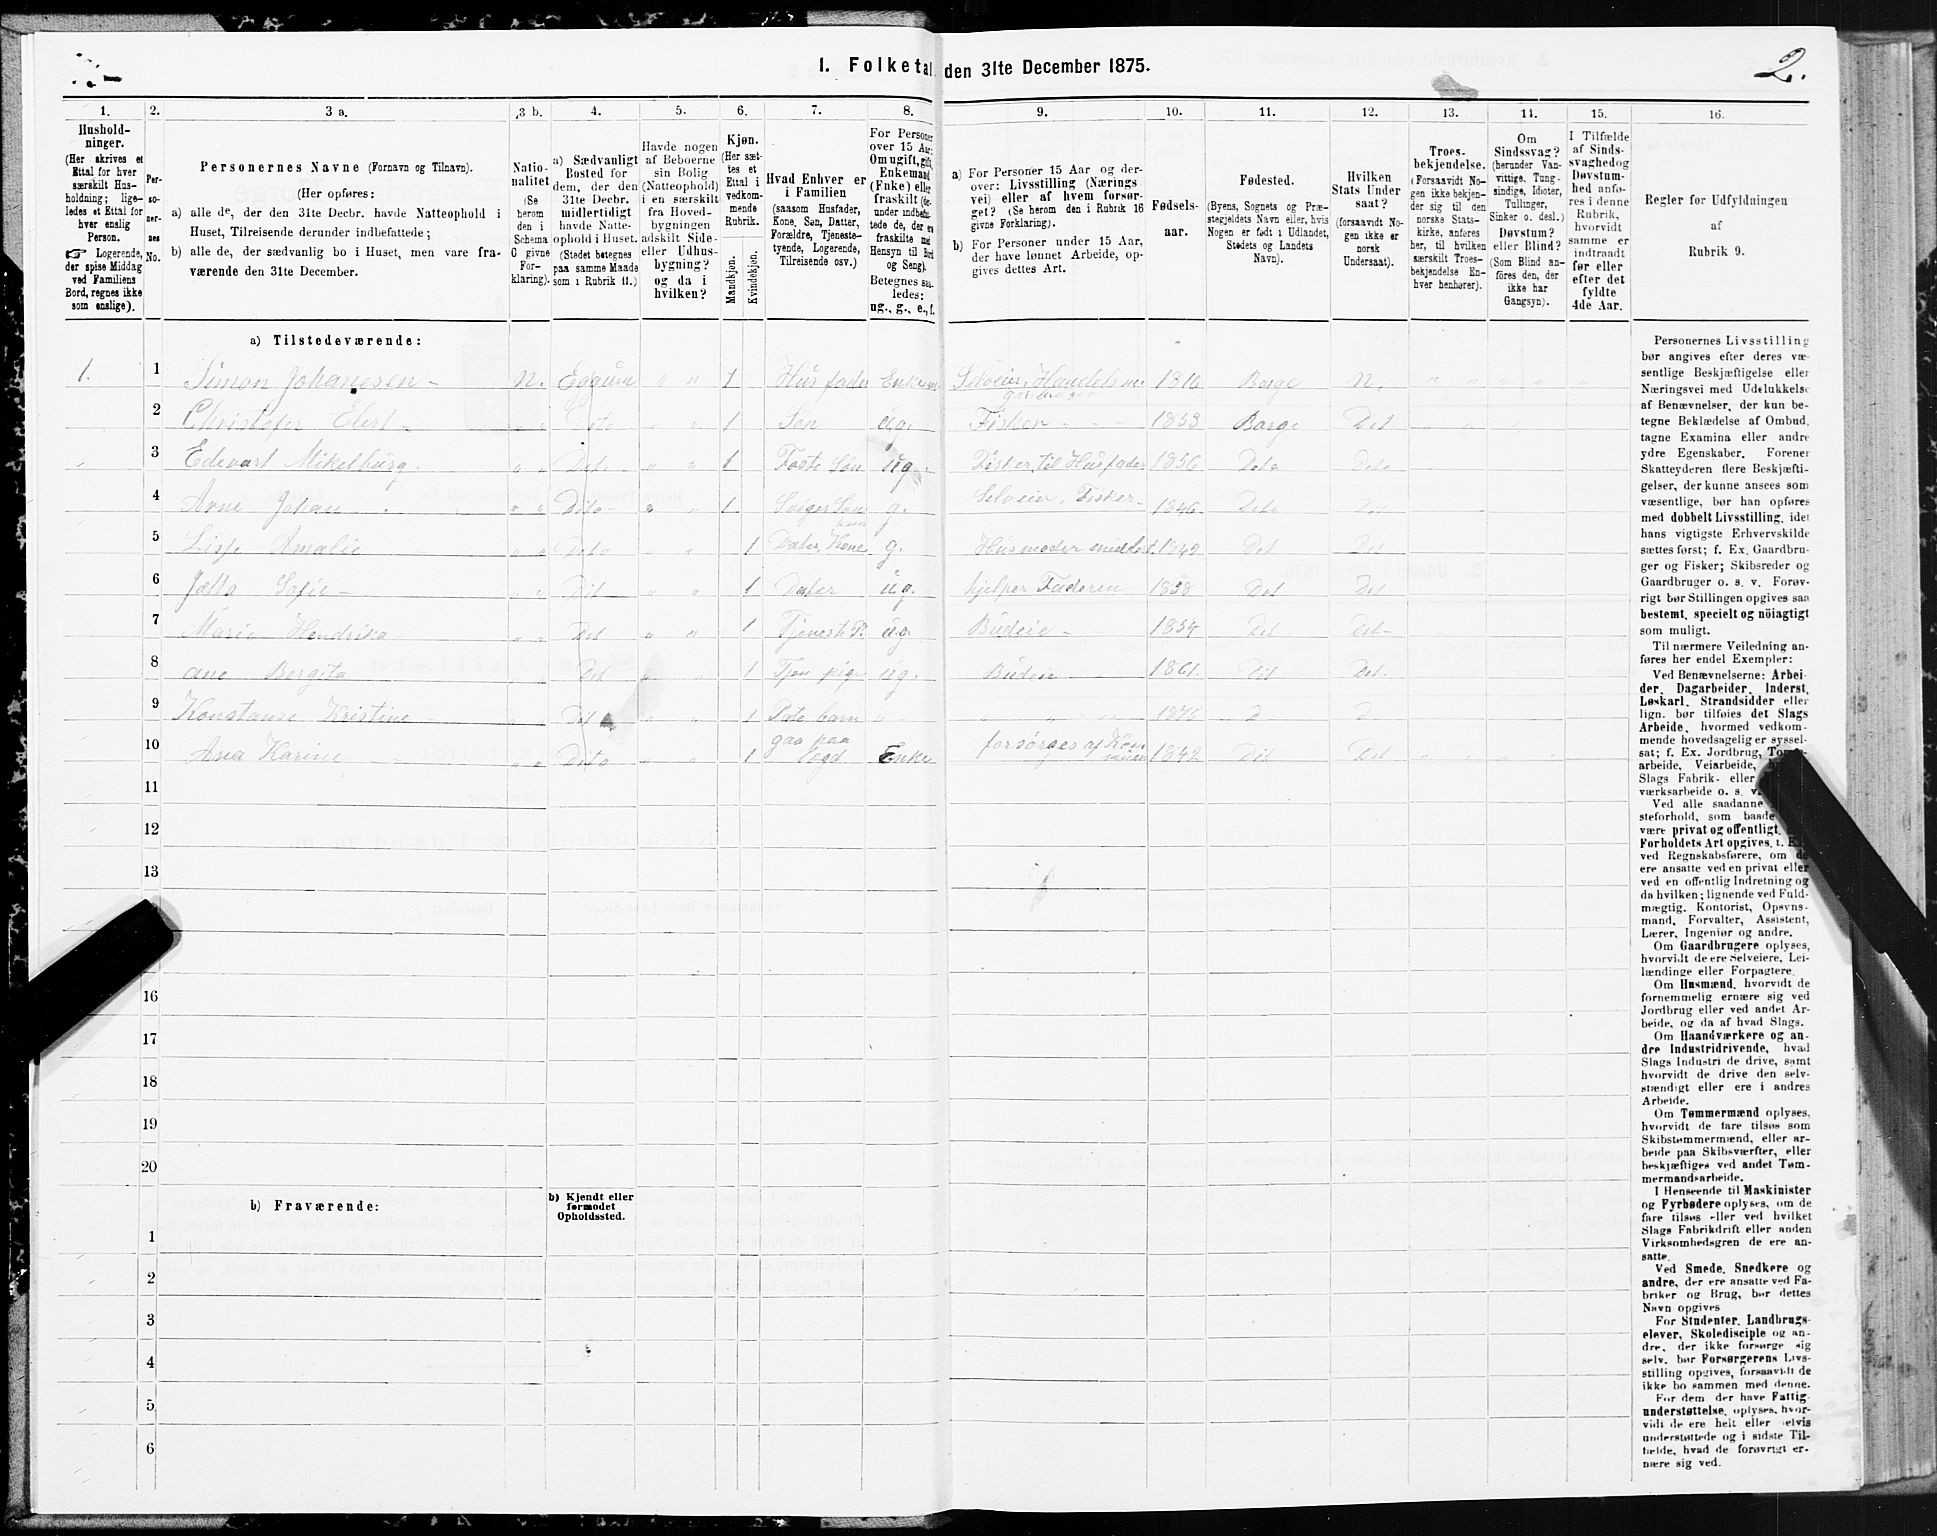 1. Folketal den 31te December 1875.
2.
1.
Hushold-
ninger.
(Her skrives et
Ettal for hver
særskilt Hus-
holdning; lige-
ledes et Ettal for
hver enslig
Person.
Logerende,
der spise Middag
ved Familiens
Bord, regnes ikke
som enslige).
2.
Per-
so-
ner-
nes
No.
3 a.
Personernes Navne (Fornavn og Tilnavn).
(Her opføres:
a) alle de, der den 31te Decbr. havde Natteophold i
Huset, Tilreisende derunder indbefattede;
b) alle de, der sædvanlig bo i Huset, men vare fra-
værende den 31te December.
3 b.
Natio-
nalitet
(Se
herom
den i
Schema
G givne
For-
klaring).
4.
a) Sædvanligt
Bosted for
dem, der den
31te Decbr.
midlertidigt
havde Natte-
ophold i Huset.
(Stedet betegnes
paa samme Maade
som i Rubrik 11.)
5.
Havde nogen
af Beboerne
sin Bolig
(Natteophold)
i en særskilt
fra Hoved-
bygningen
adskilt Side-
eller Udhus-
bygning?
og da i
hvilken?
6.
Kjøn.
(Her sæt-
tes et
Ettal i
vedkom-
mende
Rubrik.
Mandkjøn.
Kvindekjøn.
7.
Hvad Enhver er
i Familien
(saasom Husfader,
Kone, Søn, Datter,
Forældre, Tjeneste-
tyende, Logerende,
Tilreisende osv.)
8.
For Personer
over 15 Aar:
Om ugift, gift,
Enkemand
(Enke) eller
fraskilt (der-
under indbefat-
tede de, der ere
fraskilte med
Hensyn til Bord
og Seng).
Betegnes saa-
ledes:
ug., g., e., f.
9.
a) For Personer 15 Aar og der-
over: Livsstilling (Nærings-
vei) eller af hvem forsør-
get? (Se herom den i Rubrik 16
givne Forklaring).
b) For Personer under 15 Aar,
der have lønnet Arbeide, op-
gives dettes Art.
10.
Fødsels-
aar.
11.
Fødested.
(Byens, Sognets og Præ-
stegjeldets Navn eller, hvis
Nogen er født i Udlandet,
Stedets og Landets
Navn).
12.
Hvilken
Stats Under
saat?
(forsaavidt No-
gen ikke er
norsk
Undersaat).
13.
Troes-
bekjendelse.
(Forsaavidt No-
gen ikke bekjen-
der sig til den
norske Stats-
kirke, anføres
her, til hvilken
særskilt Troes-
bekjendelse En-
hver henhører).
14.
Om
Sindssvag?
(herunder Van-
vittige, Tung-
sindige, Idioter,
Tullinger,
Sinker o. desl.)
Døvstum?
eller Blind?
(Som Blind an-
føres den, der
ikke har
Gangsyn).
15.
I Tilfælde
af Sinds-
svaghed og
Døvstum-
hed anfø-
res i denne
Rubrik,
hvorvidt
samme er
indtraadt
før eller
efter det
fyldte
4de Aar.
16.
Regler for Udfyldningen
af
Rubrik 9.
a) Tilstedeværende:
1. 1 Simon Johanesen - N. Eggum " " 1 Husfader Enkem. Selveier, Handelsm. 1816 Borge N. " " " "
gaardbruger
2 Christofer Elert - " " Dito " " 1 Søn ug. Fisker - - 1853 Borge Det " " "
3 Edevart Mikelburg. " " Dito " " 1 Foste Søn ug. Fisker, til Husfader 1856 Deto Deto
4 Arne Johan - " " Dito - " " 1 Sviger Søn g. Selveier, Fisker - 1846 Deto Det
5 Lisje Amalie " " Deto " " 1 Dater, Kone g. Husmoder 1849 Det Det
6 Jetta Sofie - " " Dit " " 1 Dater ug. hjelper Faderen 1858 Det Det
7 Marie Hendrika " " Det " " 1 Tjeneste P. ug. Budeie - 1854 Det Det -
8 ane Bergita " " Det " " 1 Tjen pige ug. Budeie 1861. Dit Det.
9 Konstanse Kristine " " Dit " " 1 barn " " " " 1875 D D
10 Ana Karine " " Dito " " 1 gaa paa Enke forsørges af Kom 1842 Dit Det " " "
lægd munen
11
12
13
16
17
18
19
20
b) Fraværende:
b) Kjendt eller
formodet
Opholdssted.
1
2
3
4
5
6
Personernes Livsstilling
bør angives efter deres væ-
sentlige Beskjæftigelse eller
Næringsvei med Udelukkelse
af Benævnelser, der kun be-
tegne Beklædelse af Ombud,
tagne Examina eller andre
ydre Egenskaber. Forener
Skatteyderen flere Beskjæfti-
gelser, der kunne ansees som
væsentlige, bør han opføres
med dobbelt Livsstilling, idet
hans vigtigste Erhvervskilde
sættes først; f. Ex. Gaardbru-
ger og Fisker; Skibsreder og
Gaardbruger o. s. v. Forøv-
rigt bør Stillingen opgives saa
bestemt, specielt og nöiagtigt
som muligt.
Til nærmere Veiledning an-
føres her endel Exempler:
Ved Benævnelserne: Arbei-
der, Dagarbeider, Inderst,
Løskarl, Strandsidder eller
lign. bør tilføies det Slags
Arbeide, hvormed vedkom-
mende hovedsagelig er syssel-
sat; f. Ex. Jordbrug, Tom-
arbeide, Veiarbeide,
Slags Fabrik- eller
værksarbeide o. s. v.
Ved alle saadanne
steforhold, som baade
være privat og offentligt,
Forholdets Art opgives, t. Ex.
ved Regnskabsførere, om de
ere ansatte ved en privat eller
ved en offentlig Indretning og
da hvilken; lignende ved Fuld-
mægtig, Kontorist, Opsyns-
mand, Forvalter, Assistent,
Lærer, Ingeniør og andre.
Om Gaardbrugere oplyses,
hvorvidt de ere Selveiere, Lei-
lændinge eller Forpagtere.
Om Husmænd, hvorvidt de
fornemmelig ernære sig ved
Jordbrug eller ved andet Ar-
beide, og da af hvad Slags.
Om Haandværkere og an-
dre Industridrivende, hvad
Slags Industri de drive, samt
hvorvidt de drive den selv-
stændigt eller ere i andres
Arbeide.
Om Tømmermænd oplyses,
hvorvidt de fare tilsøs som
Skibstømmermænd, eller ar-
beide paa Skibsværfter, eller
beskjæftiges ved andet Tøm-
mermandsarbeide.
I Henseende til Maskinister
og Fyrbødere oplyses, om de
fare tilsøs eller ved hvilket
Slags Fabrikdrift eller anden
Virksomhedsgren de ere an-
satte.
Ved Smede, Snedkere og
andre, der ere ansatte ved Fa-
briker og Brug, bør dettes
Navn opgives
For Studenter, Landbrugs-
elever, Skoledisciple og an-
dre, der ikke forsørge sig
selv, bør Forsørgerens Livs-
stilling opgives, forsaavidt de
ikke bo sammen med denne.
For dem, der have Fattig-
understøttelse, oplyses, hvor-
vidt de ere helt eller delvis
understøttede og i sidste Til-
fælde, hvad de forøvrigt er-
nære sig ved.